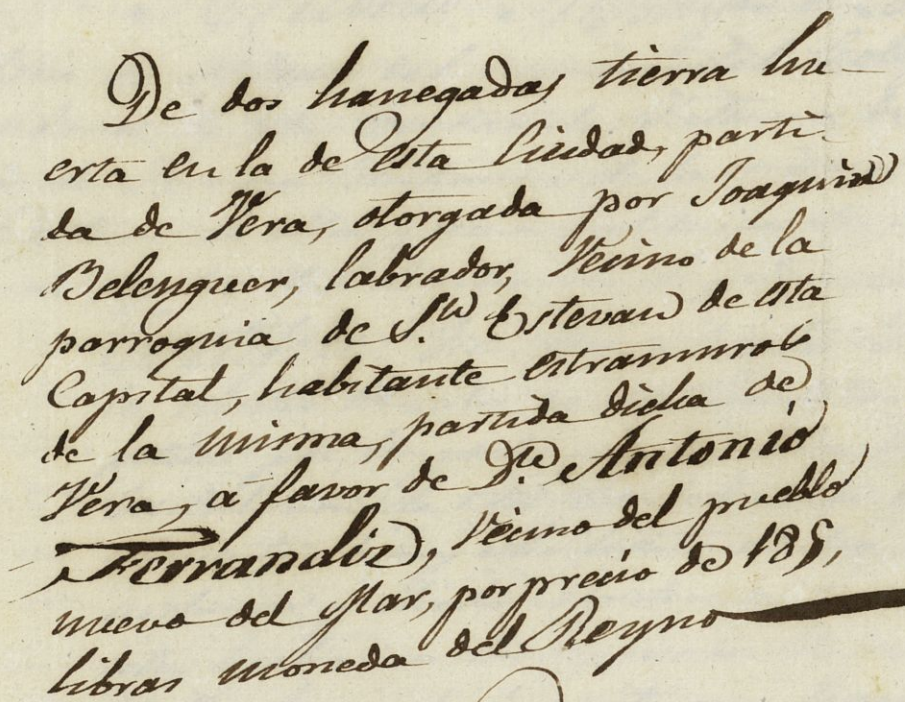 De dos hanegadas tierra hu-
erta en la de esta Ciudad, parti-
da de Vera, otorgada por Joaquin
Belenguer, labrador, Vecino de la
parroquia de Sn. Estevan de esta
Capital, habitante estramuros
de la misma, partida dicha de
Vera, á favor de Dn. Antonio
Ferrandiz, Vecino del pueblo
nuevo del Mar, por precio de 185,
libras moneda del Reyno